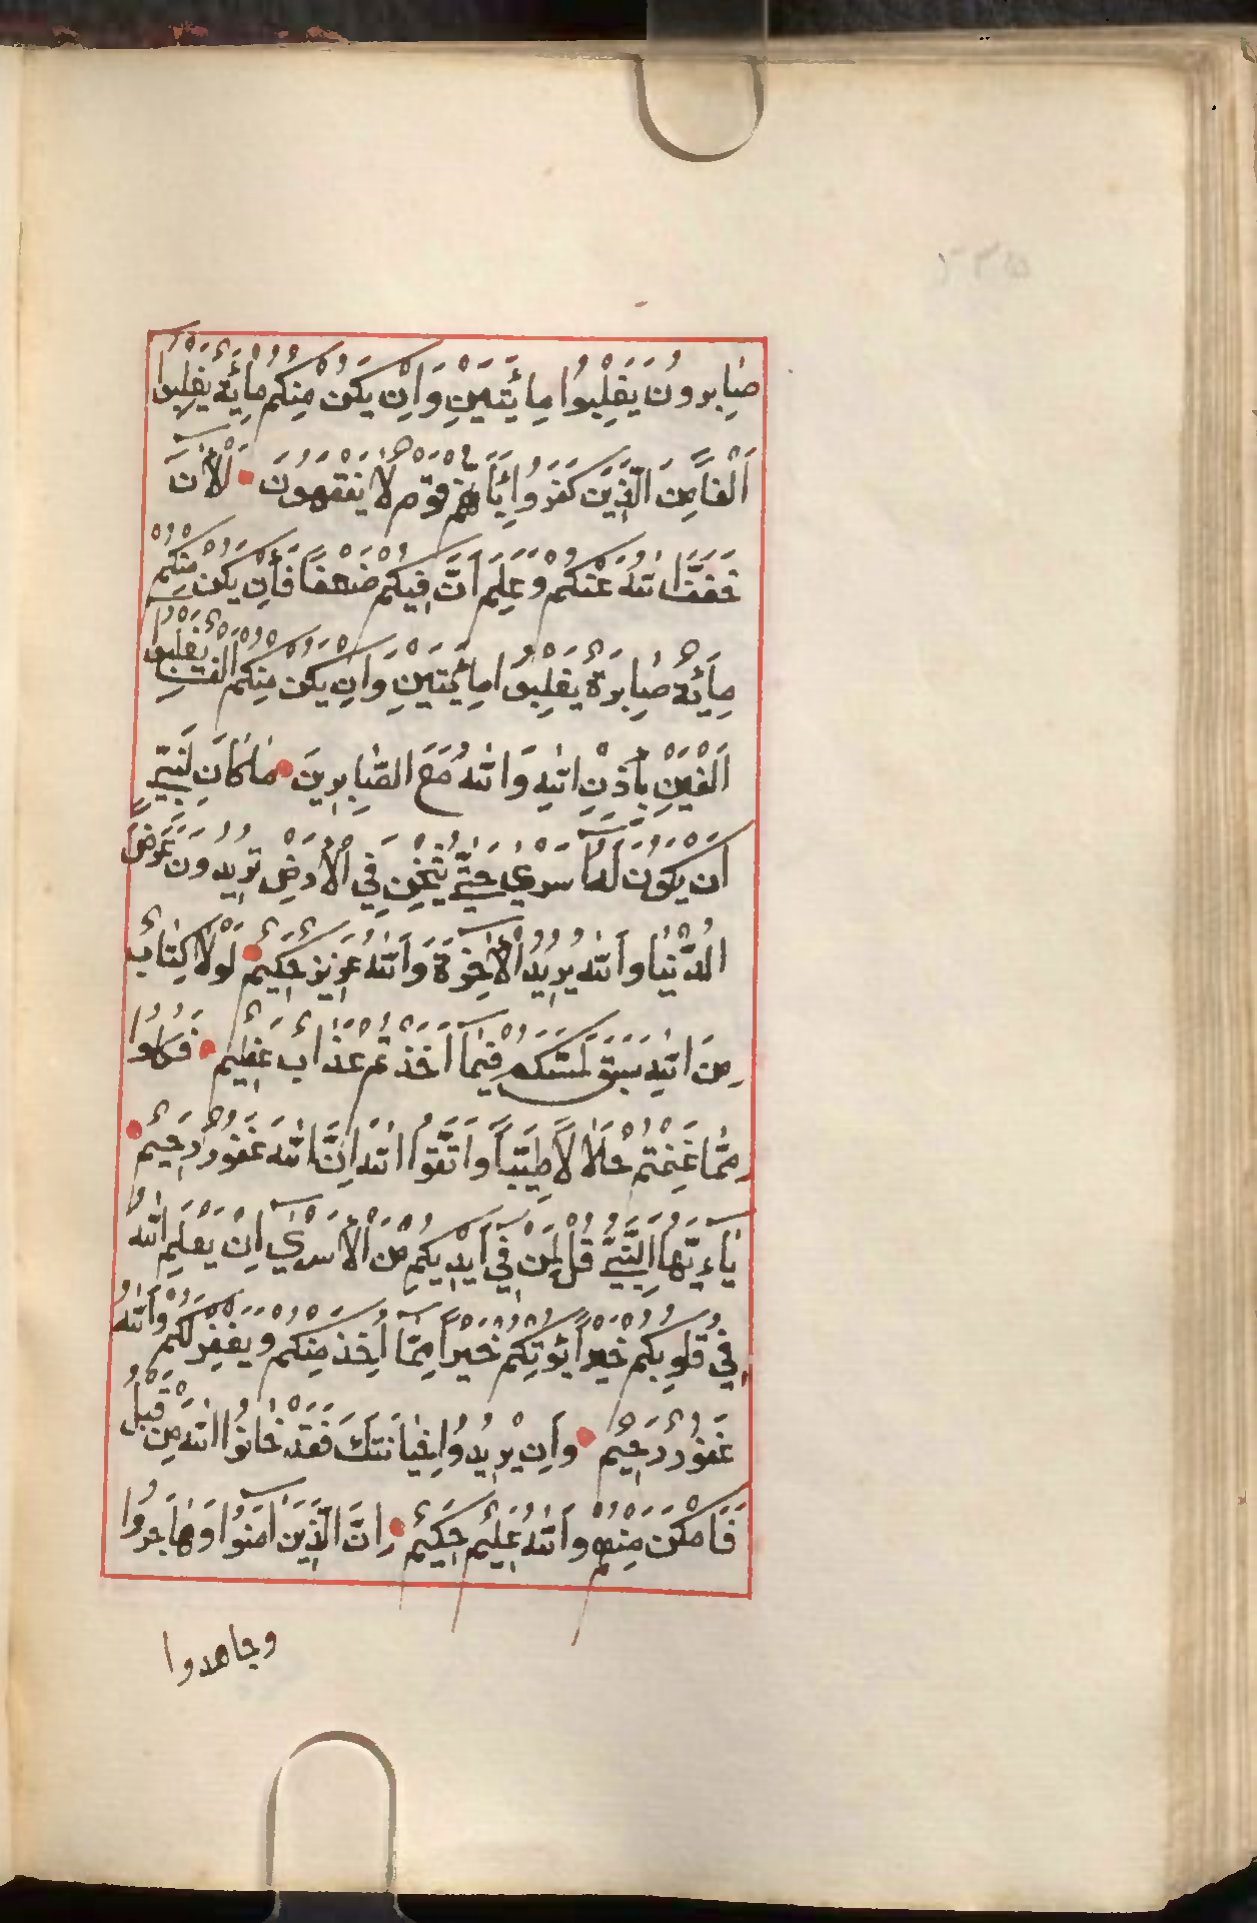 صَابِرونَ يَغْلِبُوا مِائَتَيْنِ وَاِنْ يَكُنْ مِنْكُمْ مِائَةٌ يَغْلِبُوا
اَلْفاً مِنَ الَّذِينَ كَفَرُوا بِاَنَّهُمْ قَوْمٌ لَا يَفْقَهُونَ اَلْأٰنَ
خَفَّفَ اللهُ عَنْكُمْ وَعَلِمَ اَنَّ فِيكُمْ ضَعْفاً فَاِنْ يَكُنْ مِنْكُمْ
مِائَةٌ صَابِرَةٌ يَغْلِبُوا مِائَتَيْنِ وَاِنْ يَكُنْ مِنْكُمْ اَلْفٌ يَغْلِبُوا
اَلْفَيْنِ بِاِذْنِ اللهِ وَاللهُ مَعَ الصَّابِرِينَ مَا كَانَ لِنَبِيٍّ
اَنْ يَكُونَ لَهُ اَسْرٰى حَتّٰى يُثْخِنَ فِي الْاَرْضِ تُرِيدُونَ عَرَضَ
الدُّنْيَا وَاللهُ يُرِيدُ الْاٰخِرَةَ وَاللهُ عَزِيزٌ حَكِيمٌ لَوْلَا كِتَابٌ
مِنَ اللهِ سَبَقَ لَمَسَّكُمْ فِيمَا اَخَذْتُمْ عَذَابٌ عَظِيمٌ فَكُلُوا
مِمَّا غَنِمْتُمْ حَلَالاً طَيِّباً وَاتَّقُوا اللهَ اِنَّ اللهَ غَفُورٌ رَحِيمٌ
يَاءَيُّهَا النَّبِيُّ قُلْ لِمَنْ فِي اَيْدِيكُمْ مِنَ الْاَسْرٰى اِنْ يَعْلَمِ اللهُ
فِي قُلُوبِكُمْ خَيْراً يُؤْتِكُمْ خَيْراً مِمَّا اُخِذَ مِنْكُمْ وَيَغْفِرْ لَكُمْ وَاللهُ
غَفُورٌ رَحِيمٌ وَاِنْ يُرِيدُوا خِيَانَتَكَ فَقَدْ خَانُوا اللهَ مِنْ قَبْلُ
فَاَمْكَنَ مِنْهُمْ وَاللهُ عَلِيمٌ حَكِيمٌ اِنَّ الَّذِينَ اٰمَنُوا وَهَاجَرُوا
وجاهدوا